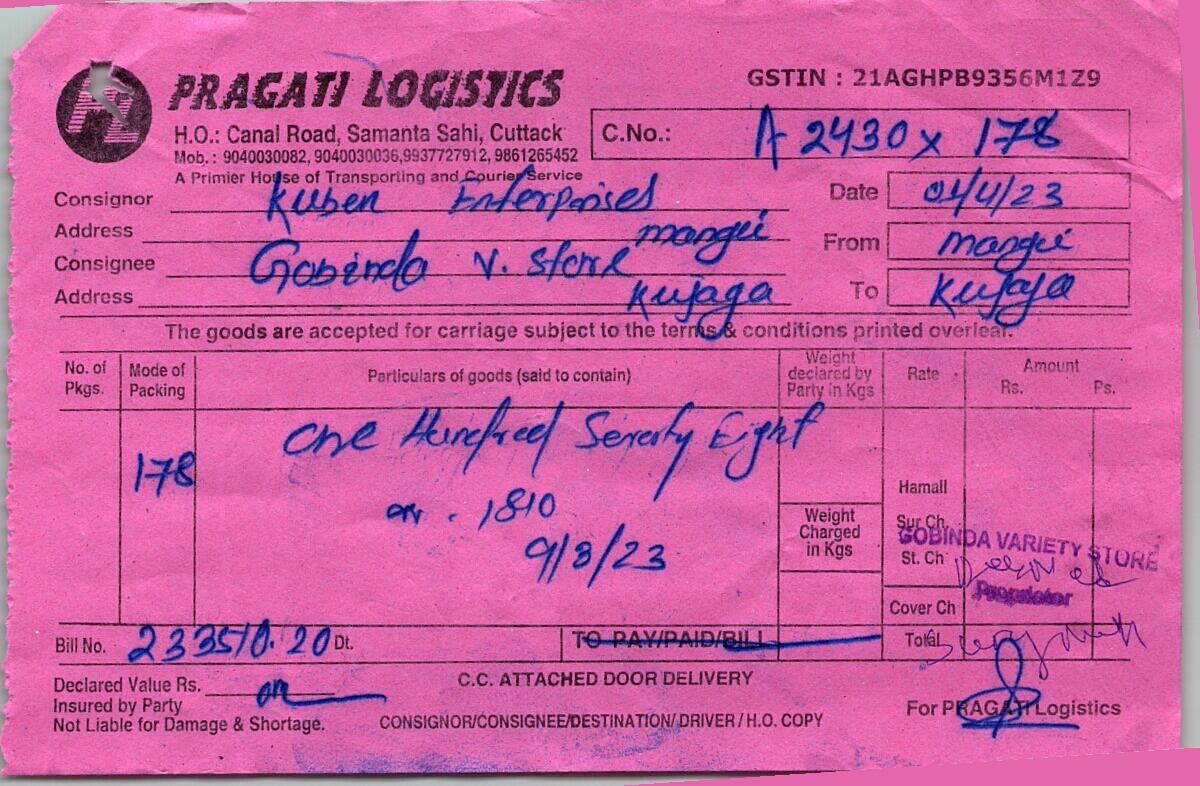 PRAGATI LOGISTICS
GSTIN : 21AGHPB9356M1Z9
H.O.: Canal Road, Samanta Sahi, Cuttack
Mob. : 9040030082, 9040030036,9937727912, 9861265452
A Primier House of Transporting and Courier Service
C.No.: A 2430 x 178
Consignor Kuben Enterprises
Date 01/4/23
Address mangu
From mangu
Consignee Gobinda V. Store
Address Kujaga
To Kujaga
The goods are accepted for carriage subject to the terms & conditions printed overleaf.
No. of Pkgs. Mode of Packing Particulars of goods (said to contain) Weight declared by Party in Kgs Rate Amount Rs. Ps.
One Hundred Seventy Eight
178
1810
9/3/23
Hamali
Weight Charged in Kgs
Sur Ch.
GOBINDA VARIETY STORE
St. Ch
Proprietor
Cover Ch
Bill No. 233510.20 Dt.
TO PAY/PAID/BILL
Total
Declared Value Rs.
C.C. ATTACHED DOOR DELIVERY
Insured by Party
Not Liable for Damage & Shortage.
CONSIGNOR/CONSIGNEE/DESTINATION/ DRIVER / H.O. COPY
For PRAGATI Logistics